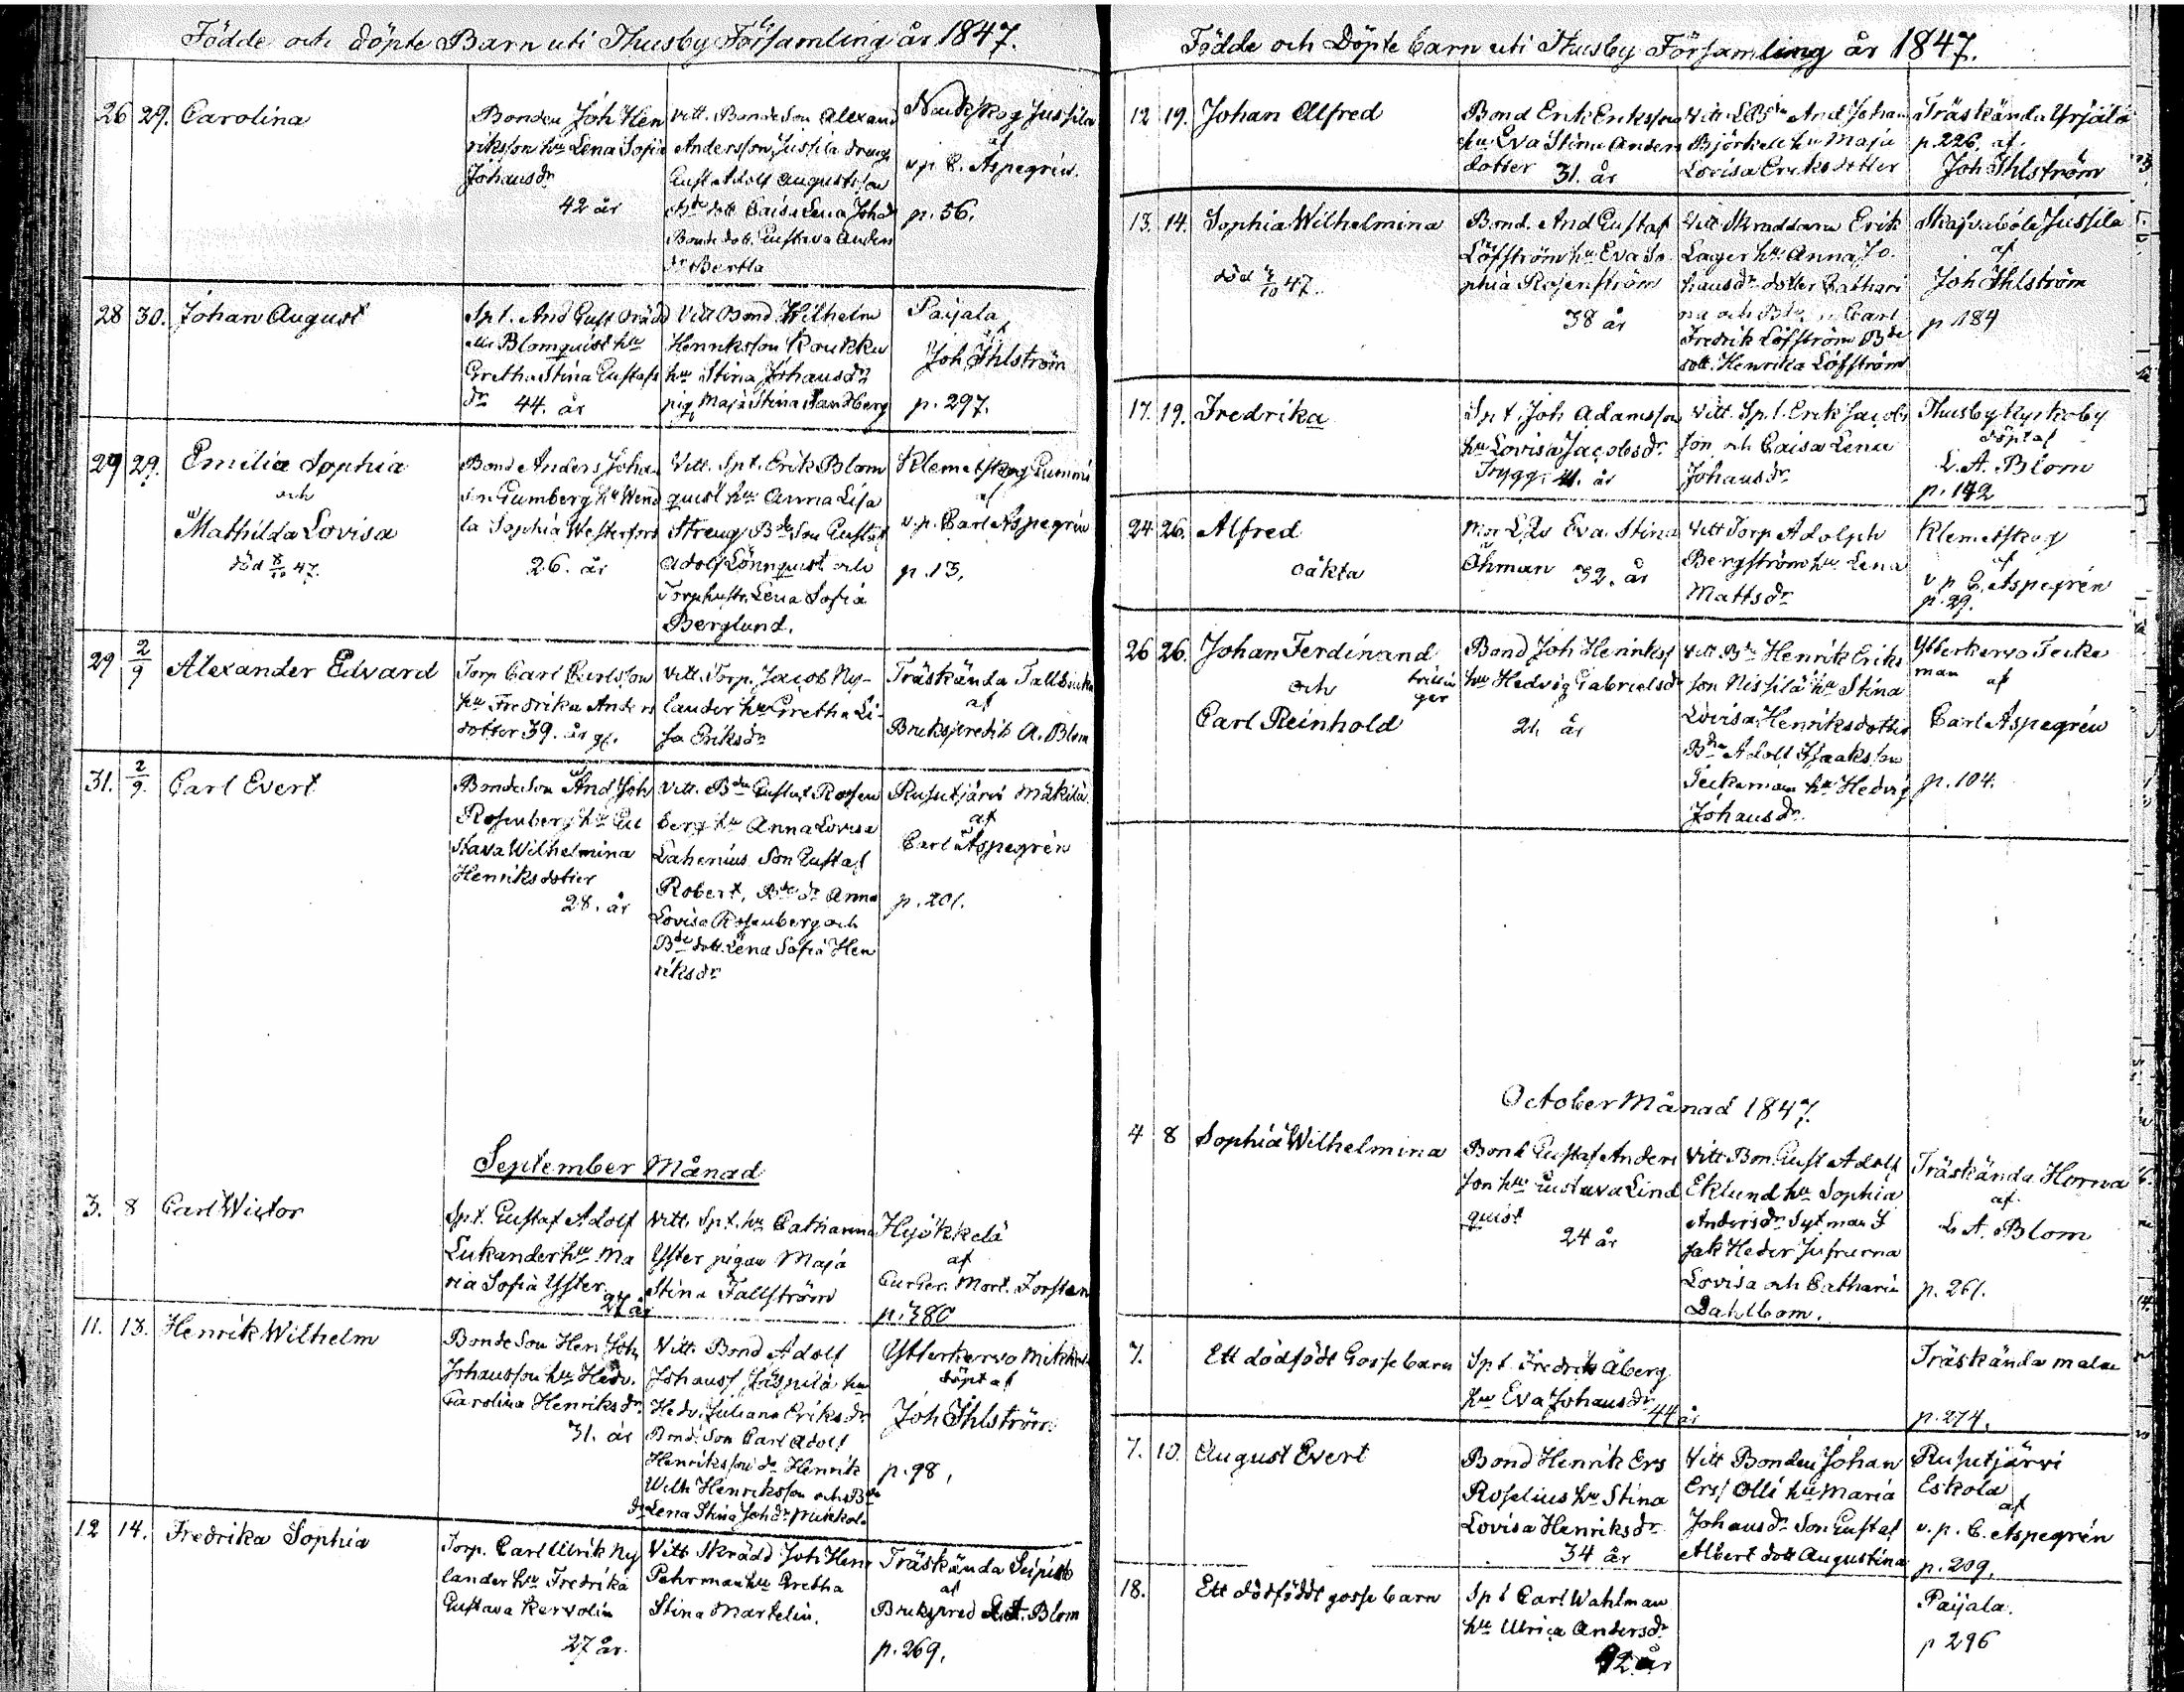 Födde och döpte Barn uti Thusby Församling år 1847.
26 29. Carolina
Bonden Joh Hen
riksson hu Lena Sofia
Johansdr
42 år
Vitt. Bondeson Alexand
Andersson Jussila dreng
Gust Adolf Augustsson
Bde dott Caisa Lena Johdr
Bonde dot. Gustava Anders
dr Bertla
Nackskog Jussila
af
v.p. C. Aspegrén.
p. 56.
28 30. Johan August
Spt. And Gust Brädd
Blomquist hu
Gretha Stina Gustafs
dr 44. år
Vitt Bond Wilhelm
Henriksson Koukku
hu Stina Johansdr
pig Maja Stina Sandberg
Paijala
af
Joh Ihlström
p. 297.
29 29. Emilia Sophia
och
Mathilda Lovisa
död 8/10 47.
Bond Anders Johan
sn Gumberg hu Wend
la Sophia Westerfors
26. år
Vitt. Spt. Erik Blom
quist hu Anna Lisa
Streng Bde Son Gustaf
Adolf Lönnquist och
Torphustr. Lena Sofia
Berglund.
Klemetskog Gummi
af
v.p. Carl Aspegrén
p. 13.
29 2/9 Alexander Edvard
Torp Carl Carlsson
hu Fredrika Anders
dotter 39. år gl.
Vitt. Torp. Jacob Ny-
lander hu Gretha Li-
sa Eriksdr
Träskända Tallbacka
af
Brukspredik A. Blom
31. 2/9. Carl Evert
Bondeson And Joh
Rosenberg hu Gu
stava Wilhelmina
Henriksdotter
28. år
Vitt. Bden Gustaf Rosen
berg hu Anna Lovisa
Lahenius Son Gustaf
Robert, Bde dr Anna
Lovisa Rosenberg och
Bde dott. Lena Sofia Hen
riksdr
Rusutjärvi Mäkilä
af
Carl Aspegrén
p. 201.
September Månad
3. 8 Carl Wictor
Spt. Gustaf Adolf
Lukander hu Ma
ria Sofia Yster
27 år
Vitt. Spt. hu Catharina
Yster pigan Maja
Stina Tallström
Hyökkelä
af
Mort. Forsten
p. 380
11. 13. Henrik Wilhelm
Bondeson Hen Joh
Johansson hu Hedv.
Carolina Henriksdr
31. år
Vitt. Bond Adolf
Johanss Jäspilä hu
Hedv. Juliana Eriksdr
Bond. Son Carl Adolf
Henriksson dr Henrik
Wilh Henriksson och Bde
dr Lena Stina Johdr
Ytterkervo Mikkola
döpt af
Joh Ihlström
p. 98,
12 14. Fredrika Sophia
Torp. Carl Ulrik Ny
lander hu Fredrika
Gustava Kervolin
27 år.
Vitt Skrädd Joh Henr
Pehrman hu Gretha
Stina Martelin.
Träskända Seipist
af
Brukspred L. A. Blom
p. 269.
Födde och Döpte barn uti Thusby Församling år 1847.
12 19. Johan Alfred
Bond Erik Eriksson
hu Eva Stina Anders
dotter 31. år
Vitt And Johan
Björkell hu Maja
Lovisa Eriksdotter
Träskända Yrjälä
p 226. af.
Joh Ihlström
13. 14. Sophia Wilhelmina
död 4/10 47.
Bond. And Gustaf
Löfström hu Eva So-
phia Rosenström
38 år
Vitt Skraddaren Erik
Lager hu Anna Jo-
hansdr dotter Cathari
na och Carl
Fredrik Löfström Bde
dott. Henrika Löfström
Skafvaböle Jussila
af
Joh Ihlström
p 184
17. 19. Fredrika
Spt. Joh Adamsson
hu Lovisa Jacobsdr
Trygg. 41. år
Vitt. Spt. Erik Jacobs
son och Caisa Lena
Johansdr
Thusby Kyrkoby
döpt af
L. A. Blom
p. 142
24 26. Alfred
oäkta
Eva Stina
Öhman 32. år
Vitt Torp Adolph
Bergström hu Lena
Mattsdr
Klemetskog
af
v. p. C. Aspegrén
p. 29.
26 26. Johan Ferdinand
och
Carl Reinhold
Bond Joh Henrikss
hu Hedvig Gabrielsdr
21 år
Vitt Bden Henrik Eriks
son Nissilä hu Stina
Lovisa Henriksdotter
Bden Adolf Isaaksson
Teckeman hu Hedvig
Johansdr
Ytterkervo Tecke
man af
Carl Aspegrén
p. 104.
October Månad 1847.
4 8 Sophia Wilhelmina
Bond Gustaf Anders
son hu Gustava Lind
quist
24 år
Vitt Bon. Gust Adolf
Eklund hu Sophia
Andersdr Sytman I
sak Heder Jufrurna
Lovisa och Catharin
Dahlbom.
Träskända Horna
af
L. A. Blom
p. 261.
7. Ett dödfödt Gosse barn
Spt Fredrik Åberg
hu Eva Johansdr
44 år
Träskända malm
p. 274.
7. 10. August Evert
Bond Henrik Ers
Roselius hu Stina
Lovisa Henriksdr
34 år
Vitt Bonden Johan
Erss Olli hu Maria
Johansdr Son Gustaf
Albert dott Augustina
Rusutjärvi
Eskola
af
v. p. C. Aspegrén
p. 209.
18. Ett dödfödt gosse barn
Spt Carl Wahlman
hu Ulrica Andersdr
Paijala.
p 296